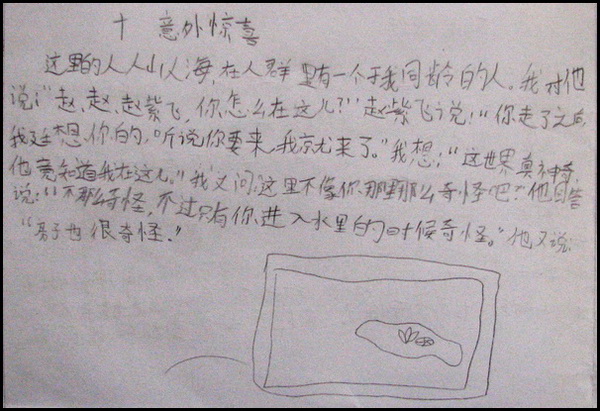 十 意外惊喜
这里的人人山人海,在人群里有一个于我同龄的人。我对他
说:“赵,赵,赵紫飞,你怎么在这儿?”赵紫飞说:“你走了之后,
我廷想你的,听说你要来,我京尤来了。”我想:“这世界真神奇,
他竟知道我在这儿。”我又问:这里不像你那那么奇怪吧?他回答
说:“不那么奇怪,不过只有你进入水里的时候奇怪。”他又说:
“子也很奇怪。”